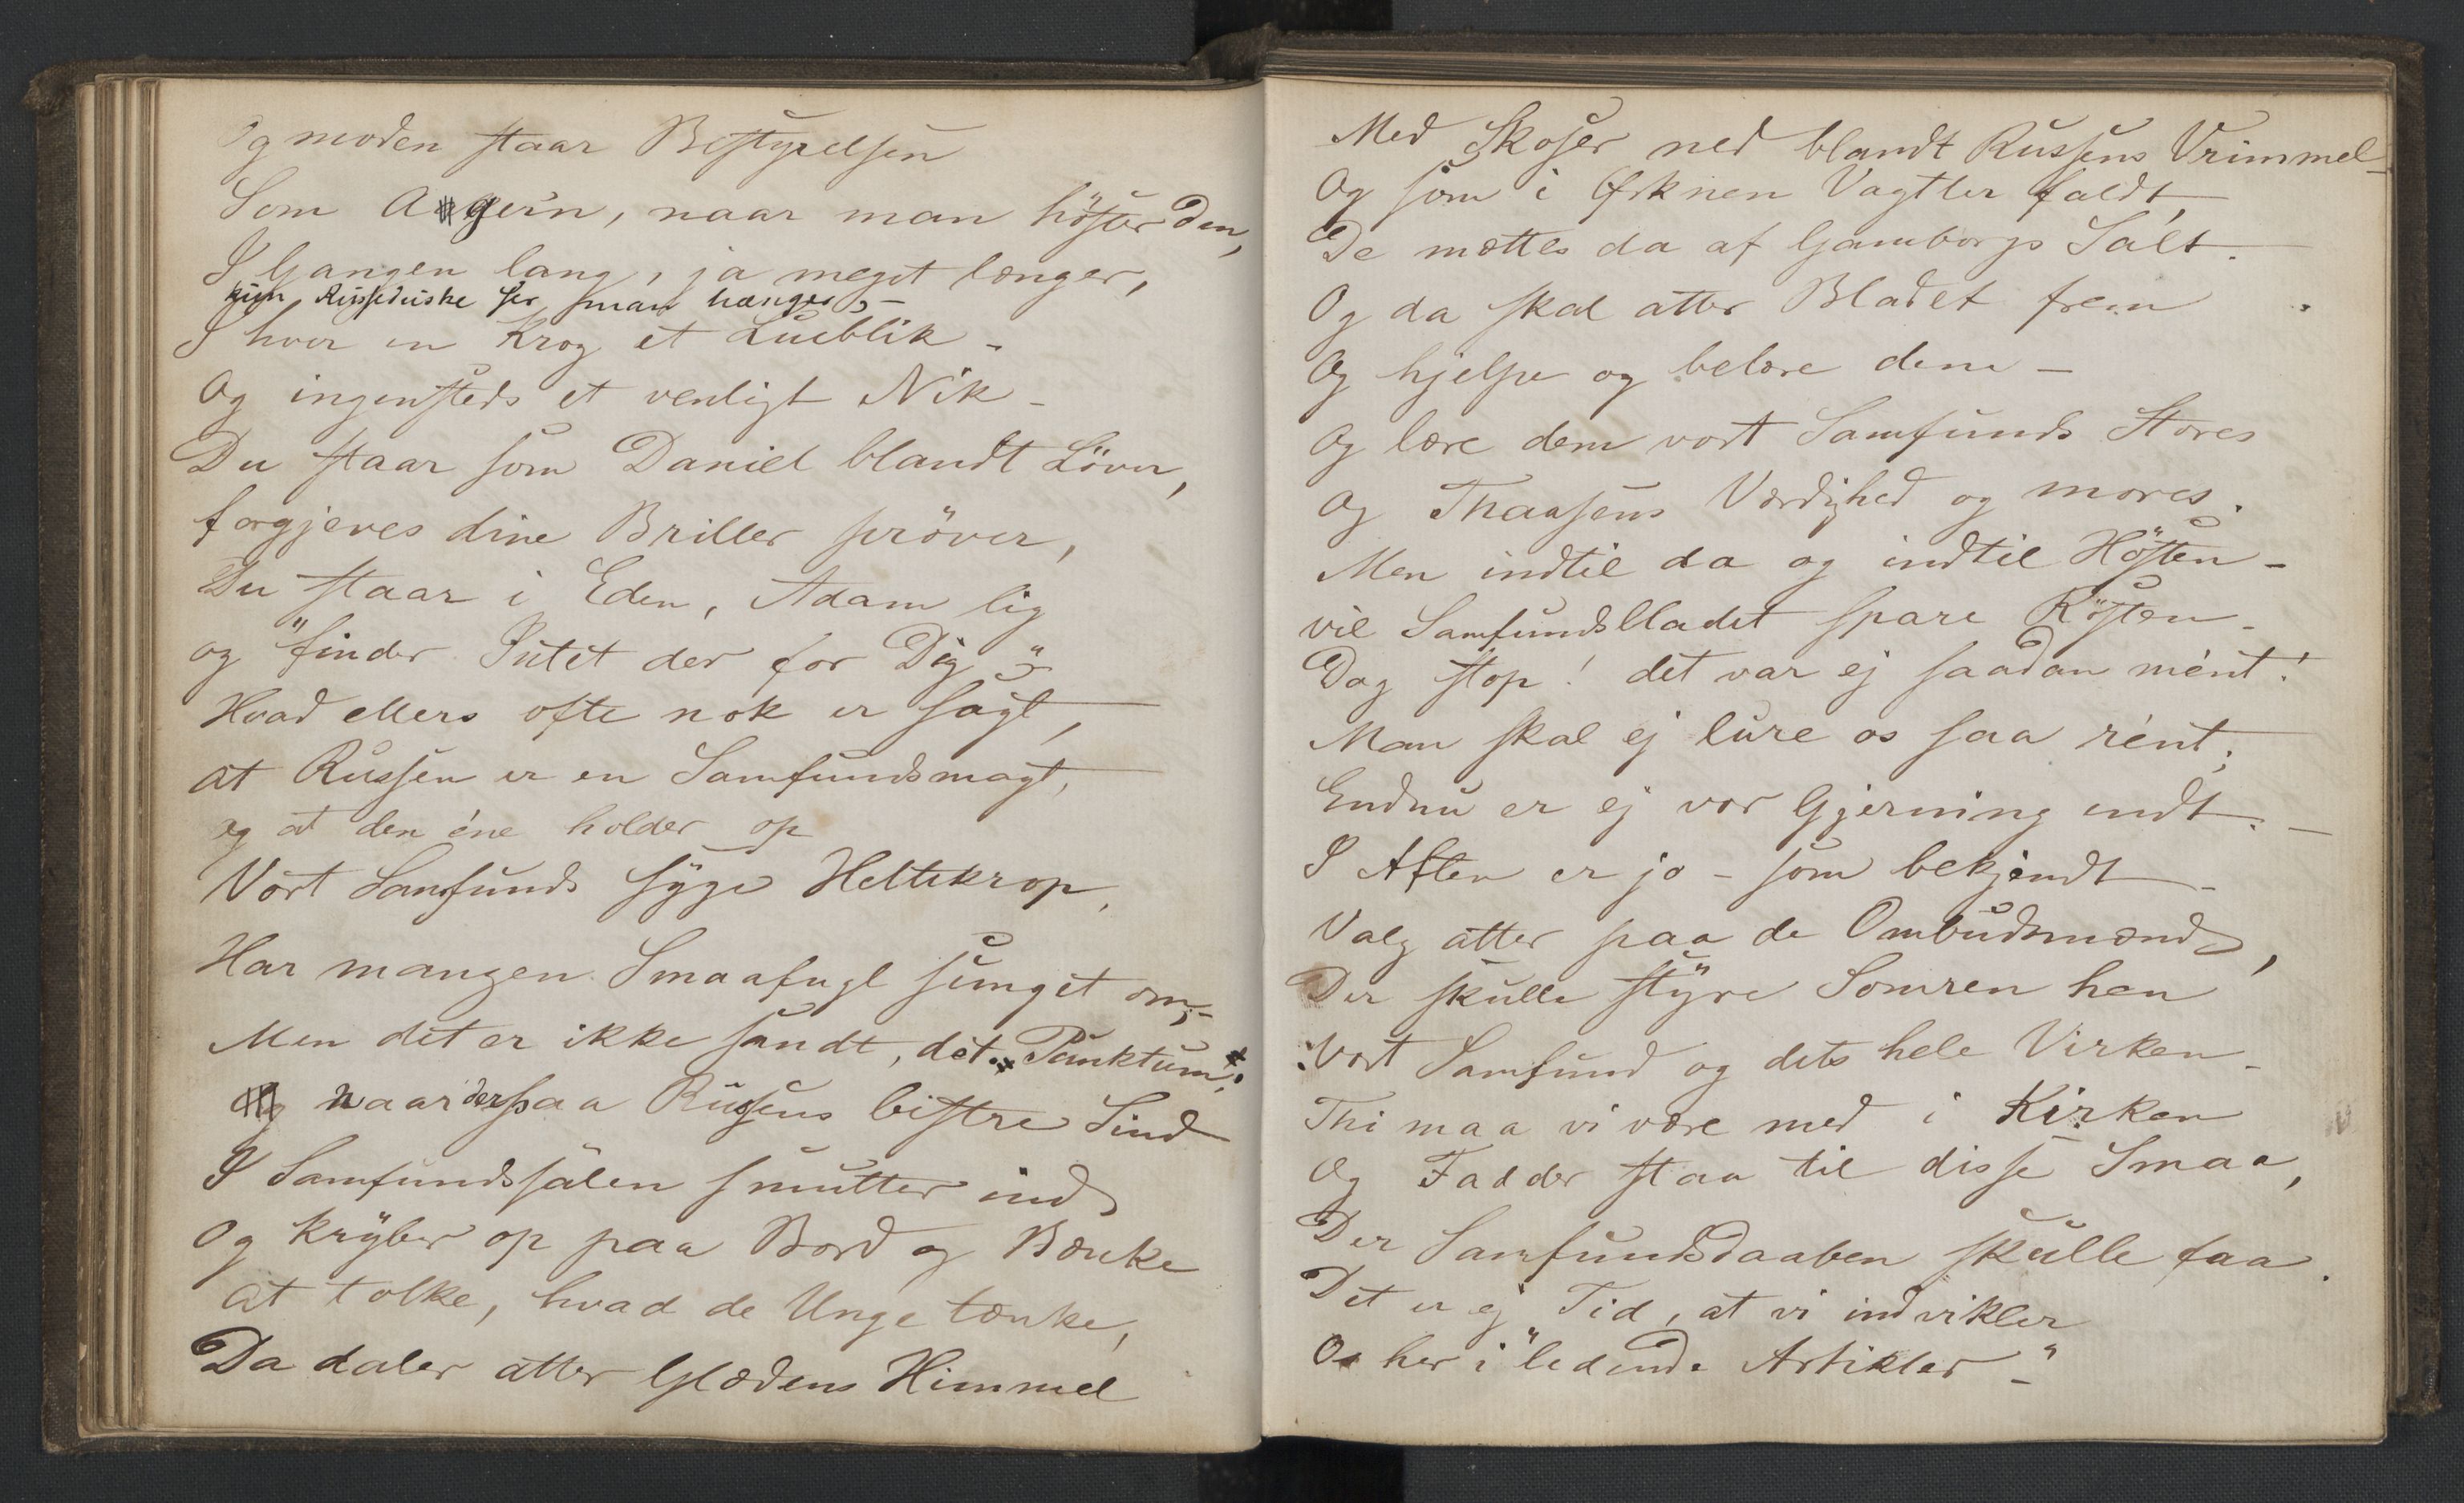 Og moden staar Bestyrelsen
Som Ageren, naar man höster den,
I Gangen lang, ja meget længer,
kun Russeduske ser man hænger,
I hver en Krog et Lueblik -
Og ingensteds et venligt Nik -
Du staar som Daniel blandt Löver,
forgjeves dine Briller pröver,
Du staar i Eden, Adam lig
og "finder Intet der for Dig"
Hvad ellers ofte nok er sagt,
at Russen er en Samfundsmagt,
og at den éne holder op
Vort Samfunds syge Heltekrop,
Har mangen Smaafugl sunget om,-
Men det er ikke sandt, det. Punktum.
naar der paa Russens bistre Sind
I Samfundssalen smutter ind
Og kryber op paa Bord og Bænke
at tolke, hvad de Unge tænke,
Da daler atter Glædens Himmel
Med Skoser ned blandt Russens Vrimmel
Og som i Ørknen Vagtler faldt,
De mættes da af Gamborgs Salt.
Og da skal atter Bladet frem
Og hjelpe og belære dem -
Og lære dem vort Samfunds Stores
Og Thaasens Værdighed og mores.
Men indtil da og indtil Hösten -
vil Samfundsbladet spare Rösten -
Dog stop! det var ej saadan mént!
Man skal ej lure os saa rént;
Endnu er ej vor Gjerning endt. -
I Aften er jo - som bekjendt -
Valg atter paa de Ombudsmænd,
Der skulle styre Somren hen
Vort Samfund og dets hele Virken -
Thi maa vi være med i Kirken
Og Fadder staa til disse Smaa,
Der Samfundsdaaben skulle faa.
Det er ej Tid, at vi indvikler
Os her i "ledende Artikler -"